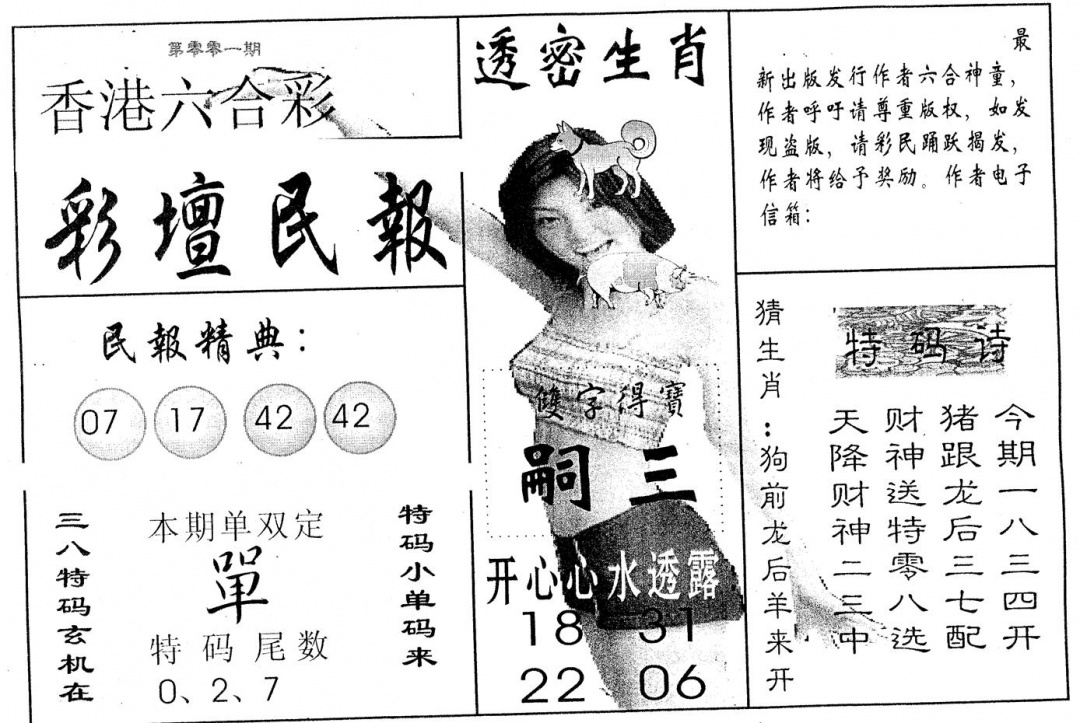 第零零一期
香港六合彩
彩壇民報
民報精典：
07 17 42 42
三八特码玄机在
本期单双定
單
特码尾数
0、2、7
特码小单码来
透密生肖
雙字得寶
嗣 三
开心心水透露
18 31
22 06
最
新出版发行作者六合神童，
作者呼吁请尊重版权，如发
现盗版，请彩民踊跃揭发，
作者将给予奖励。作者电子
信箱：
特码诗
今期一八三四开
猪跟龙后三七配
财神送特零八选
天降财神二三中
猜生肖：狗前龙后羊来开